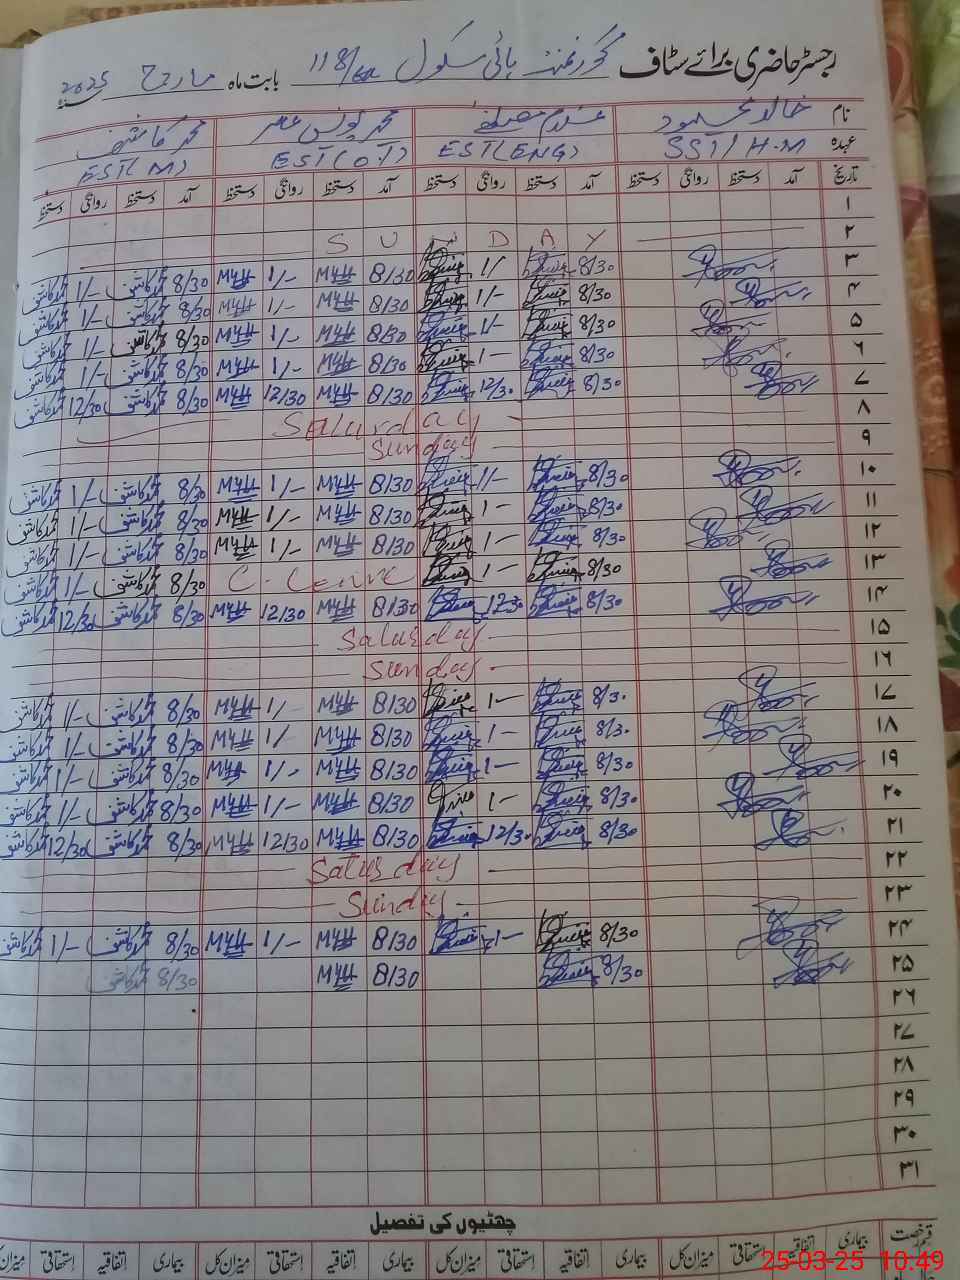 رجسٹر حاضری برائے سٹاف گورنمنٹ ہائی سکول 118/ بابت ماہ مارچ 2025
نام خالد محمود غلام مصطفے محمد یونس عمر محمد کاشف
عہدہ SST/H.M EST(ENG) EST(OT) EST(M)
تاریخ آمد دستخط روانگی دستخط آمد دستخط روانگی دستخط آمد دستخط روانگی دستخط آمد دستخط روانگی دستخط
۱
۲ S U N D A Y
۳ 8/30 1/- 8/30 M4H 1/- M4H 8/30 محمد کاشف 1/- محمد کاشف
۴ 8/30 1/- 8/30 M4H 1/- M4H 8/30 محمد کاشف 1/- محمد کاشف
۵ 8/30 1/- 8/30 M4H 1/- M4H 8/30 محمد کاشف 1/- محمد کاشف
۶ 8/30 1- 8/30 M4H 1/- M4H 8/30 محمد کاشف 1/- محمد کاشف
۷ 8/30 12/30 8/30 M4H 12/30 M4H 8/30 محمد کاشف 12/30 محمد کاشف
۸ Saturday
۹ Sunday
۱۰ 8/30 1/- 8/30 M4H 1/- M4H 8/30 محمد کاشف 1/- محمد کاشف
۱۱ 8/30 1- 8/30 M4H 1/- M4H 8/30 محمد کاشف 1/- محمد کاشف
۱۲ 8/30 1- 8/30 M4H 1/- M4H 8/30 محمد کاشف 1/- محمد کاشف
۱۳ 8/30 1- C. 8/30 محمد کاشف 1/- محمد کاشف
۱۴ 8/30 12/30 8/30 M4H 12/30 M4H 8/30 محمد کاشف 12/30 محمد کاشف
۱۵ Saturday
۱۶ Sunday
۱۷ 8/30 1- 8/30 M4H 1/- M4H 8/30 محمد کاشف 1/- محمد کاشف
۱۸ 8/30 1- 8/30 M4H 1/- M4H 8/30 محمد کاشف 1/- محمد کاشف
۱۹ 8/30 1- 8/30 M4H 1/- M4H 8/30 محمد کاشف 1/- محمد کاشف
۲۰ 8/30 1- 8/30 M4H 1/- M4H 8/30 محمد کاشف 1/- محمد کاشف
۲۱ 8/30 12/30 8/30 M4H 12/30 M4H 8/30 محمد کاشف 12/30 محمد کاشف
۲۲ Saturday
۲۳ Sunday
۲۴ 8/30 1- 8/30 M4H 1/- M4H 8/30 محمد کاشف 1/- محمد کاشف
۲۵ 8/30 8/30 M4H 8/30 محمد کاشف
۲۶
۲۷
۲۸
۲۹
۳۰
۳۱
چھٹیوں کی تفصیل
قسم رخصت بیماری اتفاقیہ استحقاقی میزان کل بیماری اتفاقیہ استحقاقی میزان کل بیماری اتفاقیہ استحقاقی میزان کل بیماری اتفاقیہ استحقاقی میزان
25-03-25 10:49